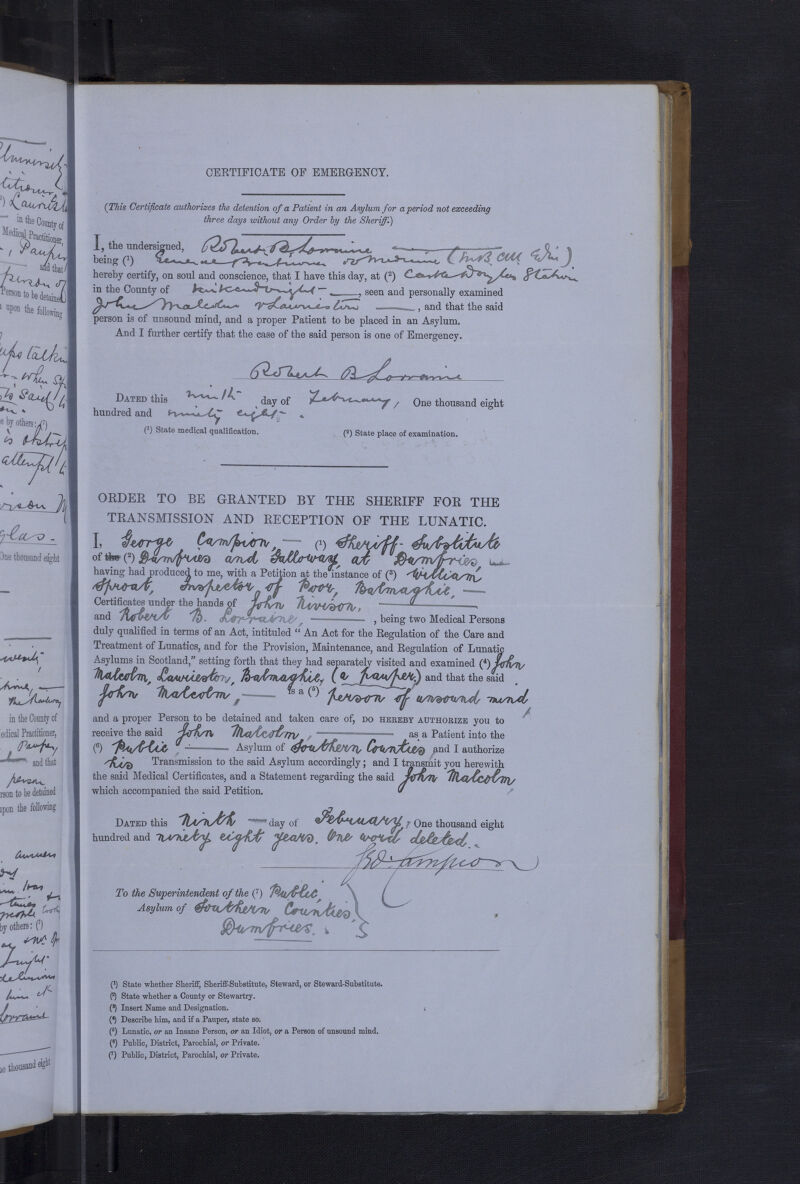 CERTIFICATE OF EMERGENCY.
(This Certificate authorizes the detention of a Patient in an Asylum for a period not exceeding
three days without any Order by the Sheriff.)
I, the undersigned, Robert B Lorraine
being (¹) General Practitioner of Medicine (M.B. CM. Edin)
hereby certify, on soul and conscience, that I have this day, at (²) Castle Douglas Station
in the County of Kirkcudbright, seen and personally examined
John Malcolm Laurieston, and that the said
person is of unsound mind, and a proper Patient to be placed in an Asylum.
And I further certify that the case of the said person is one of Emergency.
Robert B Lorraine
DATED this ninth day of February, One thousand eight
hundred and ninety eight.
(¹) State medical qualification. (²) State place of examination.
ORDER TO BE GRANTED BY THE SHERIFF FOR THE
TRANSMISSION AND RECEPTION OF THE LUNATIC.
I, George Campion, — (¹) Sheriff-Substitute
of the (²) Dumfries and Galloway, at Dumfries,
having had produced to me, with a Petition at the instance of (³) William
Sproat, Inspector of Poor, Balmaghie, —
Certificates under the hands of John Nivison,
and Robert B. Lorraine, being two Medical Persons
duly qualified in terms of an Act, intituled "An Act for the Regulation of the Care and
Treatment of Lunatics, and for the Provision, Maintenance, and Regulation of Lunatic
Asylums in Scotland," setting forth that they had separately visited and examined (⁴) John
Malcolm, Laurieston, Balmaghie, (a pauper,) and that the said
John Malcolm, — is a (⁵) person of unsound mind
and a proper Person to be detained and taken care of, DO HEREBY AUTHORIZE you to
receive the said John Malcolm, as a Patient into the
(⁶) Public Asylum of Southern Counties and I authorize
his Transmission to the said Asylum accordingly; and I transmit you herewith
the said Medical Certificates, and a Statement regarding the said John Malcolm
which accompanied the said Petition.
DATED this Ninth day of February, One thousand eight
hundred and ninety eight years. One word deleted.
G Campion
To the Superintendent of the (⁷) Public,
Asylum of Southern Counties,
Dumfries.
(¹) State whether Sheriff, Sheriff-Substitute, Steward, or Steward-Substitute.
(²) State whether a County or Stewartry.
(³) Insert Name and Designation.
(⁴) Describe him, and if a Pauper, state so.
(⁵) Lunatic, or an Insane Person, or an Idiot, or a Person of unsound mind.
(⁶) Public, District, Parochial, or Private.
(⁷) Public, District, Parochial, or Private.
in the County of
Medical Practitioner,
Pauper
said that
person of
Person to be detained
upon the following
by others: (²)
One thousand eight
in the County of
Medical Practitioner,
Pauper
and that
person
person to be detained
upon the following
by others: (²)
Lorraine
One thousand eight